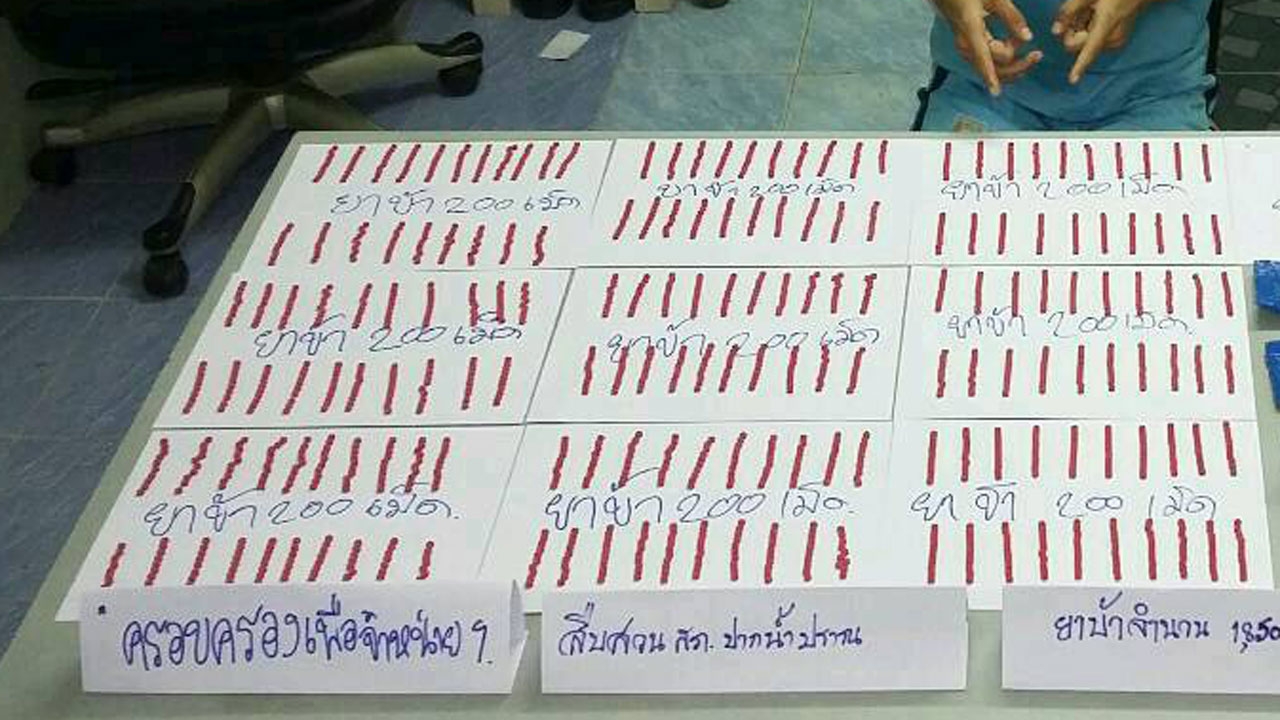 ยาบ้า 200 เม็ด
ยาบ้า 200 เม็ด
ยาบ้า 200 เม็ด
ยาบ้า 200 เม็ด
ยาบ้า 200 เม็ด
ยาบ้า 200 เม็ด.
ยาบ้า 200 เม็ด.
ยาบ้า 200 เม็ด.
ยาบ้า 200 เม็ด
ครอบครองเพื่อจำหน่าย ฯ.
สืบสวน สภ. ปากน้ำปราณ
ยาบ้าจำนวน